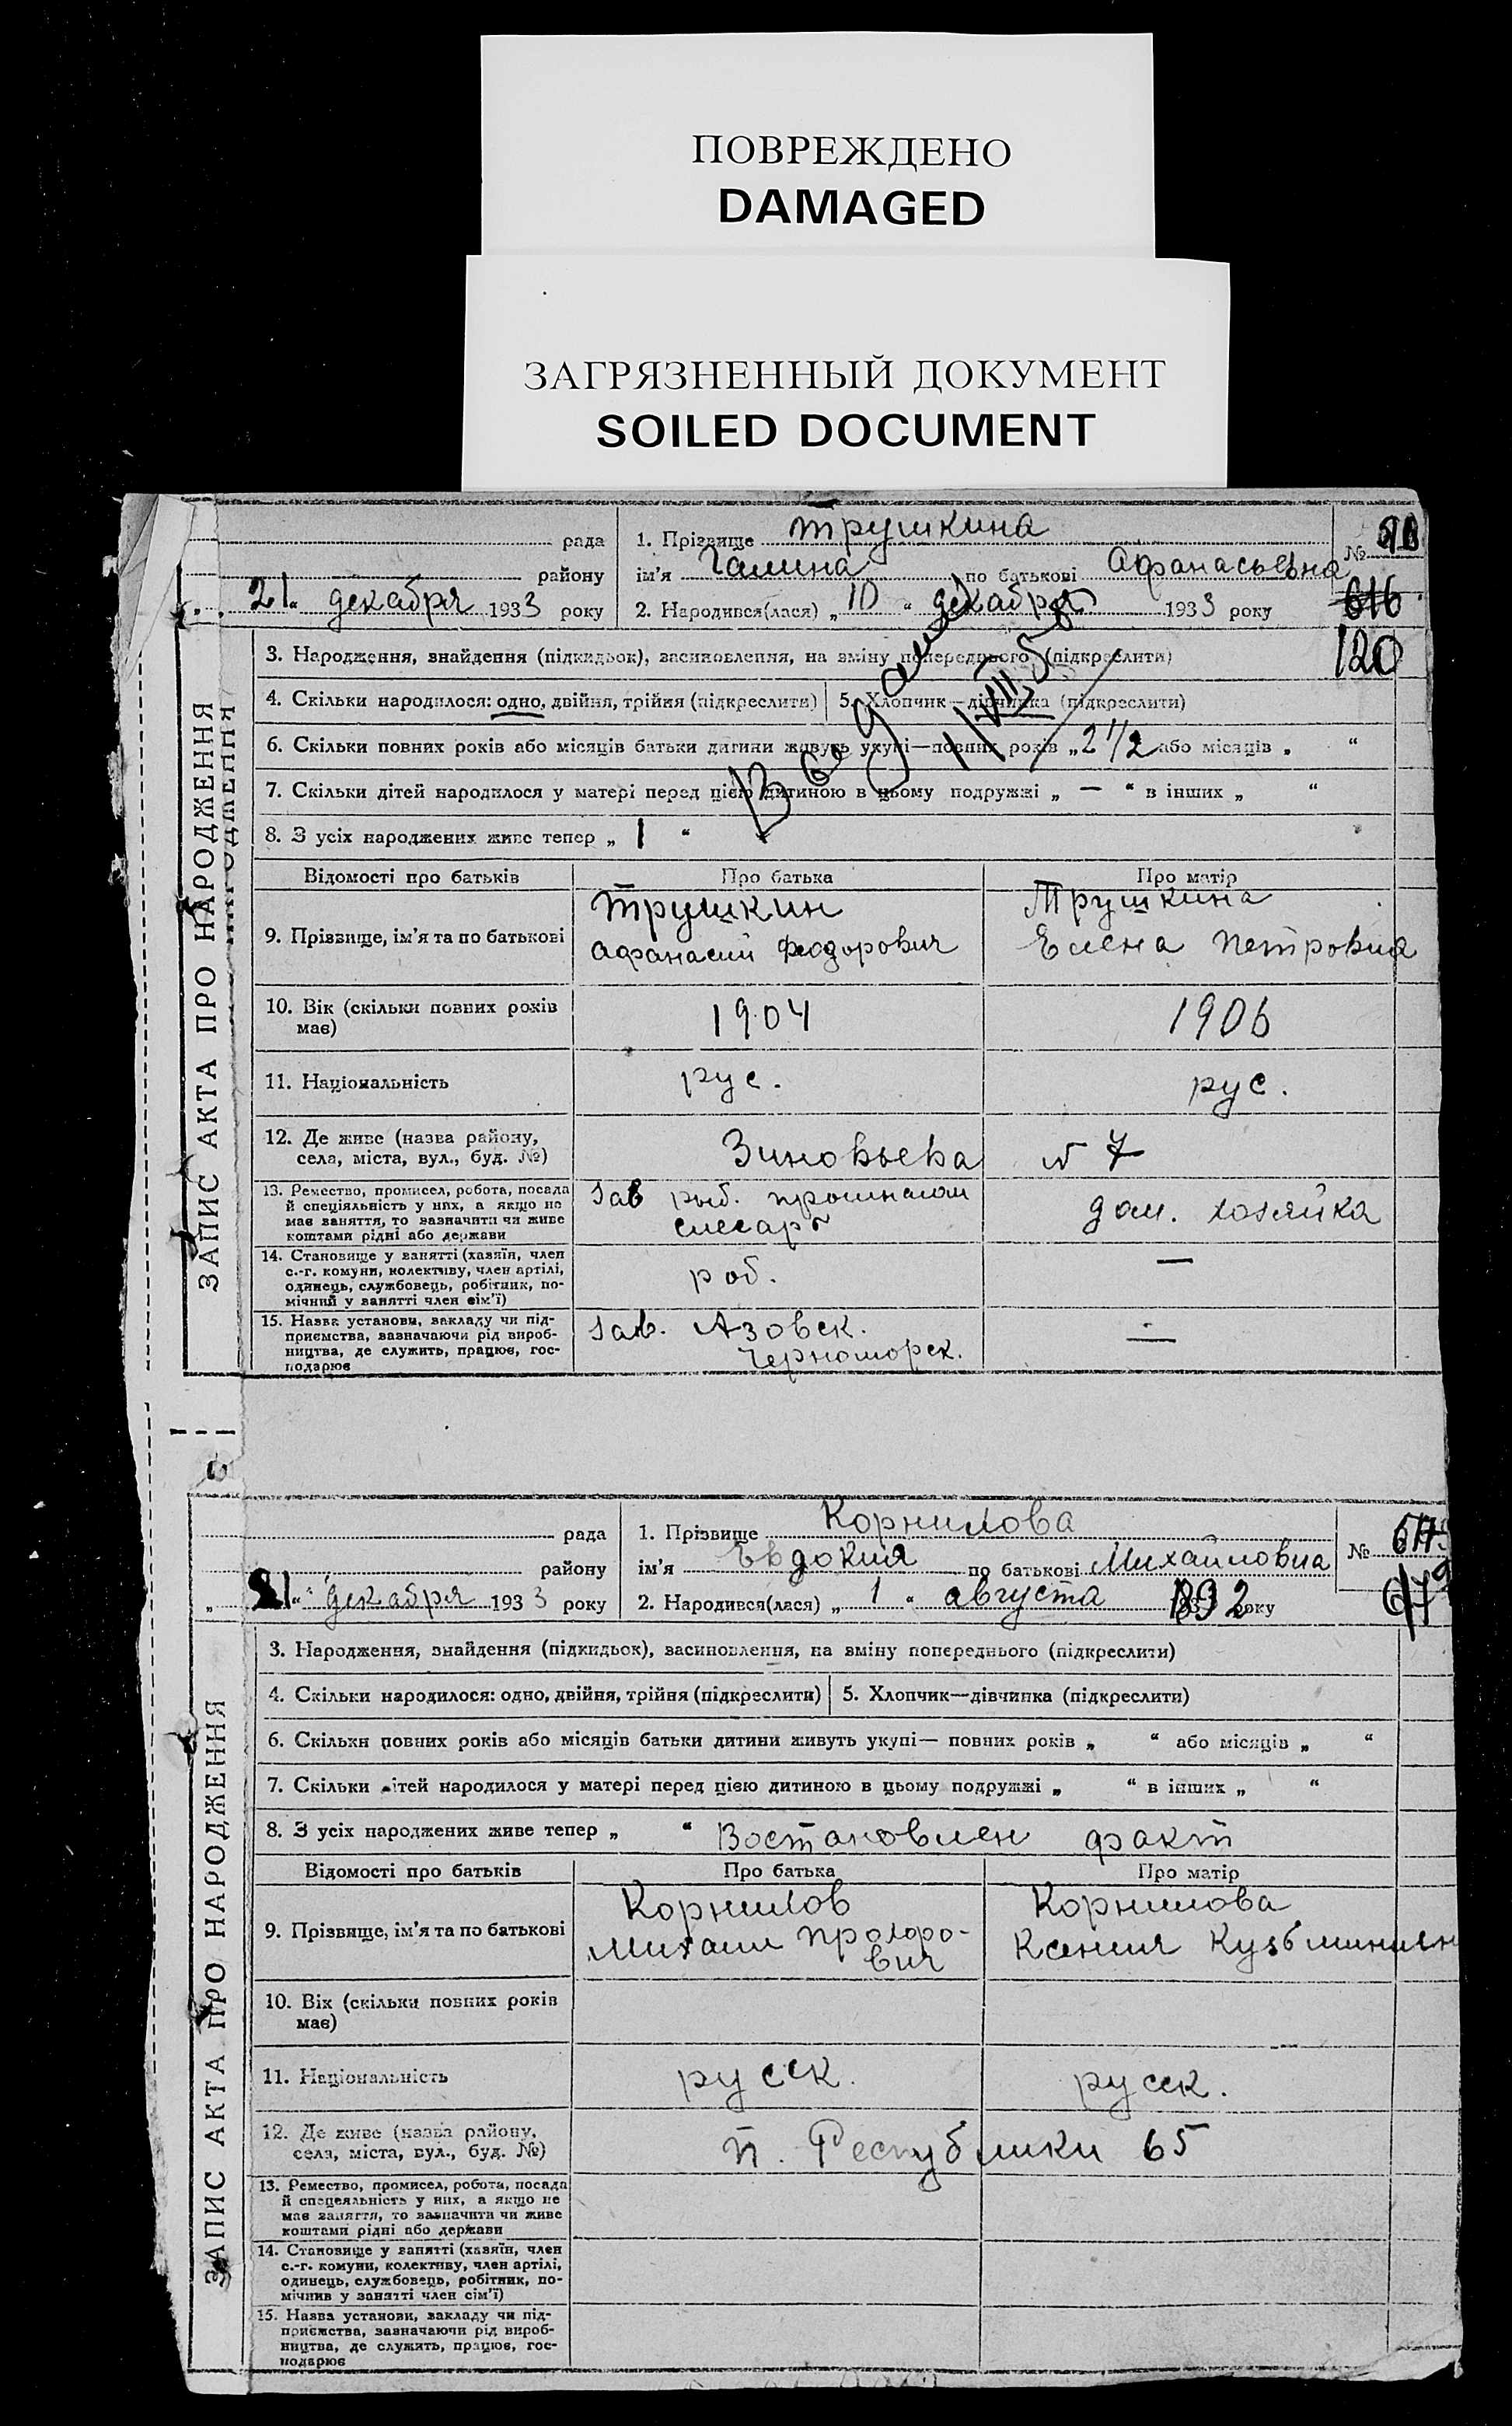 ПОВРЕЖДЕНО
DAMAGED
ЗАГРЯЗНЕННЫЙ ДОКУМЕНТ
SOILED DOCUMENT
ЗАПИС АКТА ПРО НАРОДЖЕННЯ
рада
району
21 " декабря 1933 року
1. Прізвище Трушкина
ім'я Галина по батькові Афанасьевна
2. Народився(лася) „ 10 " декабря 1933 року
№
616
120
3. Народження, знайдення (підкидьок), засиновлення, на зміну попереднього (підкреслити)
4. Скільки народилося: одно, двійня, трійня (підкреслити) 5. Хлопчик—дівчинка (підкреслити)
6. Скільки повних років або місяців батьки дитини живуть укупі—повних років „ 2 1/2 або місяців „ "
7. Скільки дітей народилося у матері перед цією дитиною в цьому подружжі „ — " в інших „ "
8. З усіх народжених живе тепер „ 1 "
Відомості про батьків Про батька Про матір
9. Прізвище, ім'я та по батькові
Трушкин
Афанасий Феодорович
Трушкина
Елена Петровна
10. Вік (скільки повних років
має)
1904 1906
11. Національність рус. рус.
12. Де живе (назва району,
села, міста, вул., буд. №)
Зиновьева № 7
13. Ремество, промисел, робота, посада
й спеціяльність у них, а якщо не
має заняття, то зазначити чи живе
коштами рідні або держави
Зав рыб.
слесарь
дом. хозяйка
14. Становище у занятті (хазяїн, член
с.-г. комуни, колективу, член артілі,
одинець, службовець, робітник, по-
мічний у занятті член сім'ї)
роб. —
15. Назва установи, закладу чи під-
приємства, зазначаючи рід вироб-
ництва, де служить, працює, гос-
подарює
Зав. Азовск.
Черноморск.
—
ЗАПИС АКТА ПРО НАРОДЖЕННЯ
рада
району
„ 21 " декабря 1933 року
1. Прізвище Корнилова
ім'я Евдокия по батькові Михайловна
2. Народився(лася) „ 1 " августа 1892 року
№
3. Народження, знайдення (підкидьок), засиновлення, на зміну попереднього (підкреслити)
4. Скільки народилося: одно, двійня, трійня (підкреслити) 5. Хлопчик—дівчинка (підкреслити)
6. Скільки повних років або місяців батьки дитини живуть укупі— повних років „ " або місяців „ "
7. Скільки дітей народилося у матері перед цією дитиною в цьому подружжі „ " в інших „ "
8. З усіх народжених живе тепер „ " Востановлен факт
Відомості про батьків Про батька Про матір
9. Прізвище, ім'я та по батькові
Корнилов
Михаил Прохоро-
вич
Корнилова
Ксения
10. Вік (скільки повних років
має)
11. Національність русск. русск.
12. Де живе (назва району,
села, міста, вул., буд. №)
п. Республики 65
13. Ремество, промисел, робота, посада
й спецеяльність у них, а якщо не
має заняття, то зазначити чи живе
коштами рідні або держави
14. Становище у занятті (хазяїн, член
с.-г. комуни, колективу, член артілі,
одинець, службовець, робітник, по-
мічнив у занятті член сім'ї)
15. Назва установи, закладу чи під-
приємства, зазначаючи рід вироб-
ництва, де служить, працює, гос-
подарює